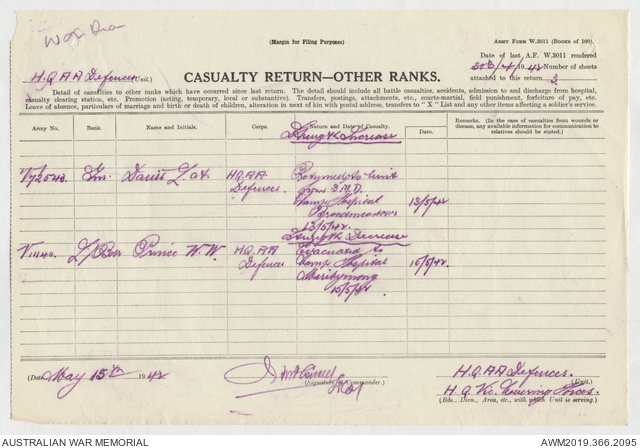 W of Dia
(Margin for Filing Purposes)
ARMY FORM W.3011 (BOOKS OF 100).
Date of last A.F. W.3011 rendered
H.Q A A Defences (Unit.)
CASUALTY RETURN—OTHER RANKS.
/4/1942 Number of sheets
attached to this return 3.
Detail of casualties to other ranks which have occurred since last return. The detail should include all battle casualties, accidents, admission to and discharge from hospital,
casualty clearing station, etc. Promotion (acting, temporary, local or substantive). Transfers, postings, attachments, etc., courts-martial, field punishment, forfeiture of pay, etc.
Leave of absence, particulars of marriage and birth or death of children, alteration in next of kin with postal address, transfers to "X" List and any other items affecting a soldier's service.
Army No. Rank. Name and Initials. Corps. Nature and Date of Casualty. Date. Remarks. (In the case of casualties from wounds or disease, any available information for communication to relatives should be stated.)
Strength Increase
Gnr. Davis L. A. H.Q. AA Returned to Unit
Defences. from 3 M.D.
Camp Hospital
Broadmeadows 13/5/42
13/5/42.
Strength Decrease
V11140. L/Bdr Prince W.W. H.Q. AA Evacuated to
Defences Camp Hospital 15/5/42.
Maribyrnong
15/5/42
(Date) May 15th 1942
(Signature of Commander.)
H.Q. A A Defences.
(Unit.)
H.Q. Vic. Forces.
(Bde., Divn., Area, etc., with which Unit is serving.)
AUSTRALIAN WAR MEMORIAL
AWM2019.366.2095